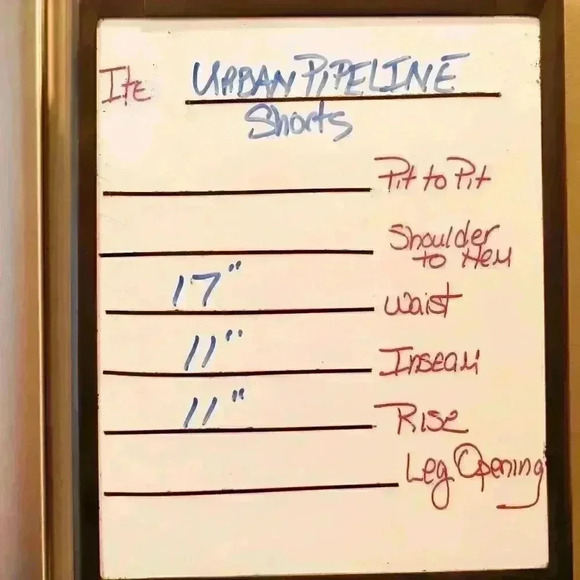 Ite URBAN PIPELINE
Shorts
Pit to Pit
Shoulder
to Hem
17" Waist
11" Inseam
11" Rise
Leg Opening